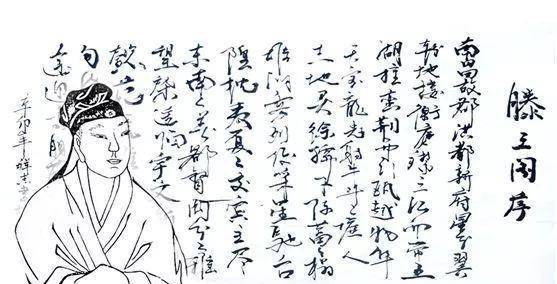 滕王阁序
南昌故郡洪都新府星分翼
轸地接衡庐襟三江而带五
湖控蛮荆而引瓯越物华
天宝龙光射牛斗之墟人
杰地灵徐孺下陈蕃之榻
雄州雾列俊采星驰台
隍枕夷夏之交宾主尽
东南之美都督阎公之雅
望棨遥临宇文之
懿范
旬
辛卯年